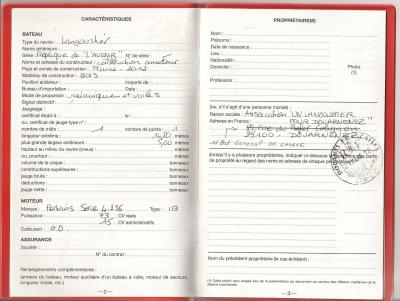 CARACTÉRISTIQUES
BATEAU
Type du navire : Langoustier
Noms antérieurs :
Série : Réplique de "L'AVENIR" N° de série :
Nom et adresse du constructeur : construction amateur
Pays et année de construction : France - 2012
Matériau de construction : BOIS
Pavillon antérieur : Importé de :
Bureau d'importation : Date :
Mode de propulsion : mécanique et voiles
Signal distinctif :
Jaugeage :
certificat établi à : le :
ou, certificat de jauge-type n° :
nombre de mâts : 1 nombre de ponts : 1
longueur extrême : mètres
plus grande largeur extérieure : 5,00 mètres
hauteur au milieu du navire (creux) : mètres
ou, pourtour : mètres
volume de la coque : tonneaux
constructions supérieures : tonneaux
jauge brute : tonneaux
déductions : tonneaux
jauge nette : tonneaux
MOTEUR
Marque : Perkins Série 4.236 Type :
Puissance : 73 CV réels
15 CV administratifs
Carburant : G.O.
ASSURANCE
Société :
N° du contrat :
Renseignements complémentaires :
(annexe du bateau, moteur auxiliaire d'un bateau à voile, moteur de secours,
longueur totale, etc.)
– 2 –
PROPRIÉTAIRE(S)
Nom :
Prénoms :
Date de naissance :
Lieu :
Nationalité :
Domicile :
Photo
(1)
Profession :
(ou, s'il s'agit d'une personne morale) :
Raison sociale : Association "UN LANGOUSTIER
Adresse en France : POUR DOUARNENEZ"
29100 - DOUARNENEZ
(lorsqu'il y a plusieurs propriétaires, indiquer ci-dessous
de propriété ainsi que les nom et adresse de chaque
Nom du précédent propriétaire (le cas échéant) :
– 3 –